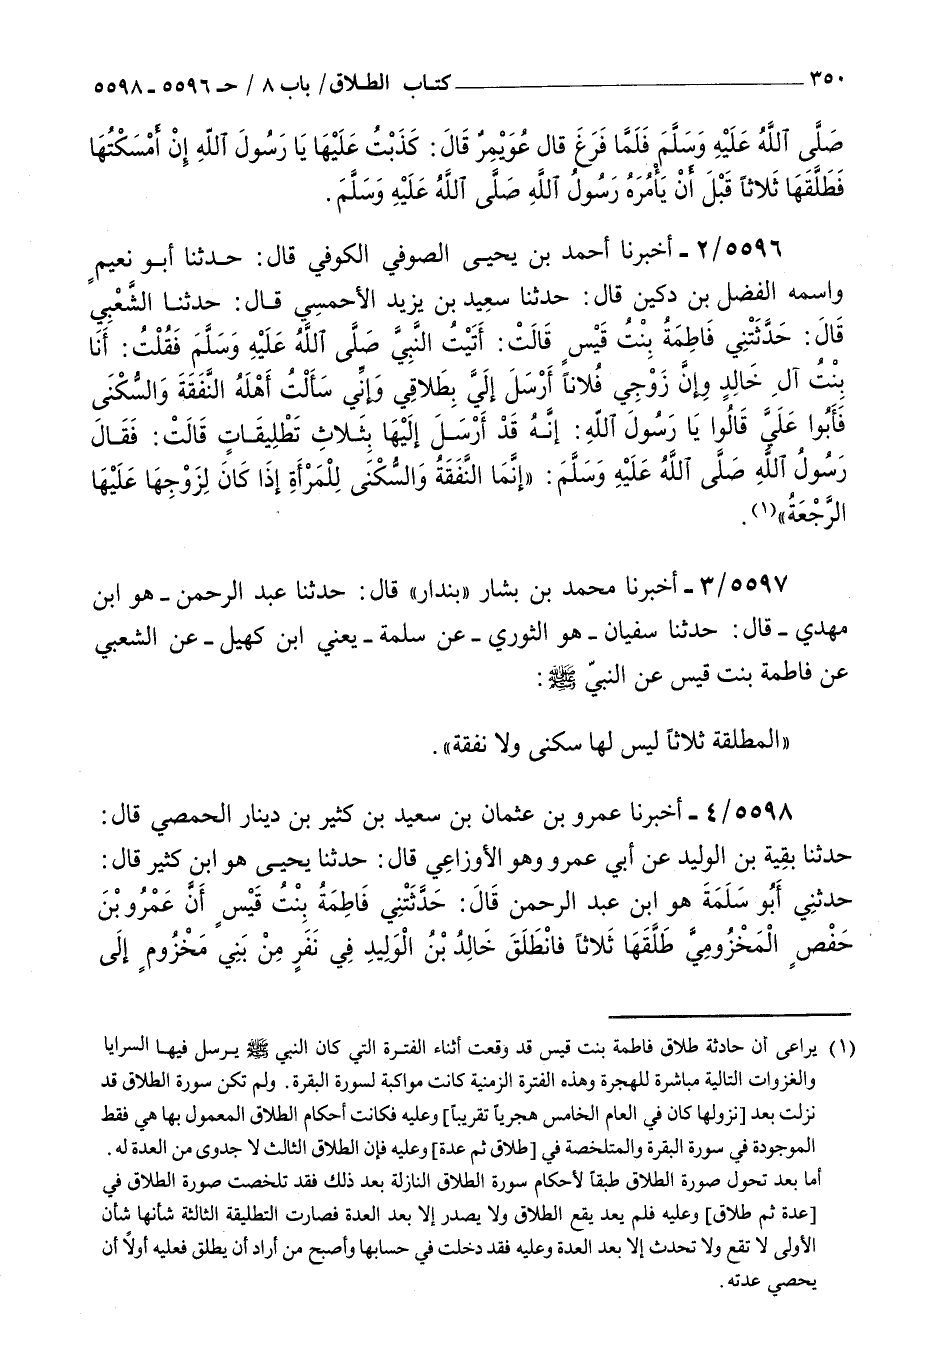 ٣٥٠ ــــــــــــــــــــــــــــ كتـاب الطـلاق/ باب ٨ / حـ ٥٥٩٦ ـ ٥٥٩٨
صَلَّى ٱللَّهُ عَلَيْهِ وَسَلَّمَ فَلَمَّا فَرَغَ قال عُوَيْمِرٌ قَالَ: كَذَبْتُ عَلَيْهَا يَا رَسُولَ ٱللّهِ إِنْ أَمْسَكْتُهَا
فَطَلَّقَهَا ثَلاثاً قَبْلَ أَنْ يَأْمُرَهُ رَسُولُ ٱللَّهِ صَلَّى ٱللَّهُ عَلَيْهِ وَسَلَّمَ.
٢/٥٥٩٦ ـ أخبرنا أحمد بن يحيـى الصوفي الكوفي قال: حـدثنا أبـو نعيمٍ
واسمه الفضل بن دكين قال: حدثنا سعيد بن يزيد الأحمسي قـال: حدثنـا الشَّعْبِي
قَالَ: حَدَّثَتْنِي فَاطِمَةُ بِنْتُ قَيْسٍ قَالَتْ: أَتَيْتُ النَّبِيَّ صَلَّى ٱللَّهُ عَلَيْهِ وَسَلَّمَ فَقُلْتُ: أَنَا
بِنْتُ آلِ خَالِدٍ وإِنَّ زَوْجِي فُلاناً أَرْسَلَ إِلَيَّ بِطَلاقِي وَإِنِّي سَأَلْتُ أَهْلَهُ النَّفَقَةَ وَالسُّكْنَى
فَأَبُوا عَلَيَّ قَالُوا يَا رَسُولَ ٱللَّهِ: إِنَّـهُ قَدْ أَرْسَـلَ إِلَيْهَا بِثَـلاثِ تَطْلِيقَـاتٍ قَالَتْ: فَقَـالَ
رَسُولُ ٱللَّهِ صَلَّى ٱللَّهُ عَلَيْهِ وَسَلَّمَ: «إِنَّمَا النَّفَقَةُ وَالسُّكْنَى لِلْمَرْأَةِ إِذَا كَانَ لِزَوْجِهَا عَلَيْهَا
الرَّجْعَةُ»(١).
٣/٥٥٩٧ ـ أخبرنا محمد بن بشار «بندار» قال: حدثنا عبد الرحمن ـ هو ابن
مهدي ـ قال: حدثنا سفيان ـ هو الثوري ـ عن سلمة ـ يعني ابن كهيل ـ عن الشعبي
عن فاطمة بنت قيس عن النبيّ ﷺ:
«المطلقة ثلاثاً ليس لها سكنى ولا نفقة».
٤/٥٥٩٨ ـ أخبرنا عمرو بن عثمان بن سعيد بن كثير بن دينار الحمصي قال:
حدثنا بقية بن الوليد عن أبي عمرو وهو الأوزاعي قال: حدثنا يحيـى هو ابن كثير قال:
حدثنِي أَبُو سَلَمَةَ هو ابن عبد الرحمن قَالَ: حَدَّثَتْنِي فَاطِمَةُ بِنْتُ قَيْسٍ أَنَّ عَمْرُو بْنَ
حَفْصٍ الْمَخْزُومِيَّ طَلَّقَهَا ثَلاثاً فانْطَلَقَ خَالِدُ بْنُ الْوَلِيدِ فِي نَفَرٍ مِنْ بَنِي مَخْزُومٍ إِلَى
(١) يراعى أن حادثة طلاق فاطمة بنت قيس قد وقعت أثناء الفتـرة التي كان النبي ﷺ يـرسل فيهـا السرايا
والغزوات التالية مباشرة للهجرة وهذه الفترة الزمنية كانت مواكبة لسورة البقرة. ولم تكن سورة الطلاق قد
نزلت بعد [نزولها كان في العام الخامس هجرياً تقريباً] وعليه فكانت أحكام الطلاق المعمول بها هي فقط
الموجودة في سورة البقرة والمتلخصة في [طلاق ثم عدة] وعليه فإن الطلاق الثالث لا جدوى من العدة له.
أما بعد تحول صورة الطلاق طبقاً لأحكام سورة الطلاق النازلة بعد ذلك فقد تلخصت صورة الطلاق في
[عدة ثم طلاق] وعليه فلم يعد يقع الطلاق ولا يصدر إلا بعد العدة فصارت التطليقة الثالثة شأنها شأن
الأولى لا تقع ولا تحدث إلا بعد العدة وعليه فقد دخلت في حسابها وأصبح من أراد أن يطلق فعليه أولاً أن
يحصي عدته.